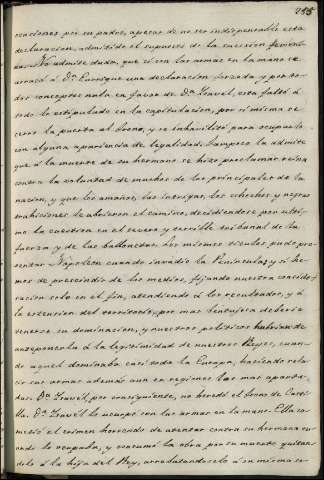 255
caciones por su padre, apesar de no ser indispensable esta
declaracion, admitido el supuesto de la cuestion feuda-
No admite duda, que si con las armas en la mano se
arrancó á Dn. Enrique una declaracion forzada y por to-
dos conceptos nula en favor de Dña. Isavel, esta faltó á
todo lo estipulado en la capitulacion, por sí misma se
cerró la puerta al trono, y se inhabilitó para ocuparlo
con alguna apariencia de legalidad. Tampoco la admite
que á la muerte de su hermano se hizo proclamar reina
contra la voluntad de muchos de los principales de la
nacion, y que los amaños, las intrigas, los cohechos y negras
trahiciones le abrieron el camino, decidiendose por ulti-
mo la cuestion en el severo y terrible tribunal de la
fuerza y de las ballonetas. Los mismos titulos pudo pre-
sentar Napoleon cuando invadió la Peninsula; y si he-
mos de prescindir de los medios, fijando nuestra conside-
racion solo en el fin, atendiendo á los resultados, y á
la estencion del territorio, por mas ventajosa deberia
tenerse su dominacion, y nuestros politicos habrian de
anteponerla á la legitimidad de nuestros Reyes, cuan-
do aquel dominaba casi toda la Europa, haciendo relu-
cir sus armas además aun en regiones las mas aparta-
das. Dña. Isavel por consiguiente, no heredó el trono de Casti-
lla. Dña. Isavel lo usurpó con las armas en la mano. Ella co-
metió el crimen horrendo de atentar contra su hermano cu-
ando lo ocupaba, y consumó la obra por su muerte quitan-
dolo á la hija del Rey, arrebatandoselo á su misma so-